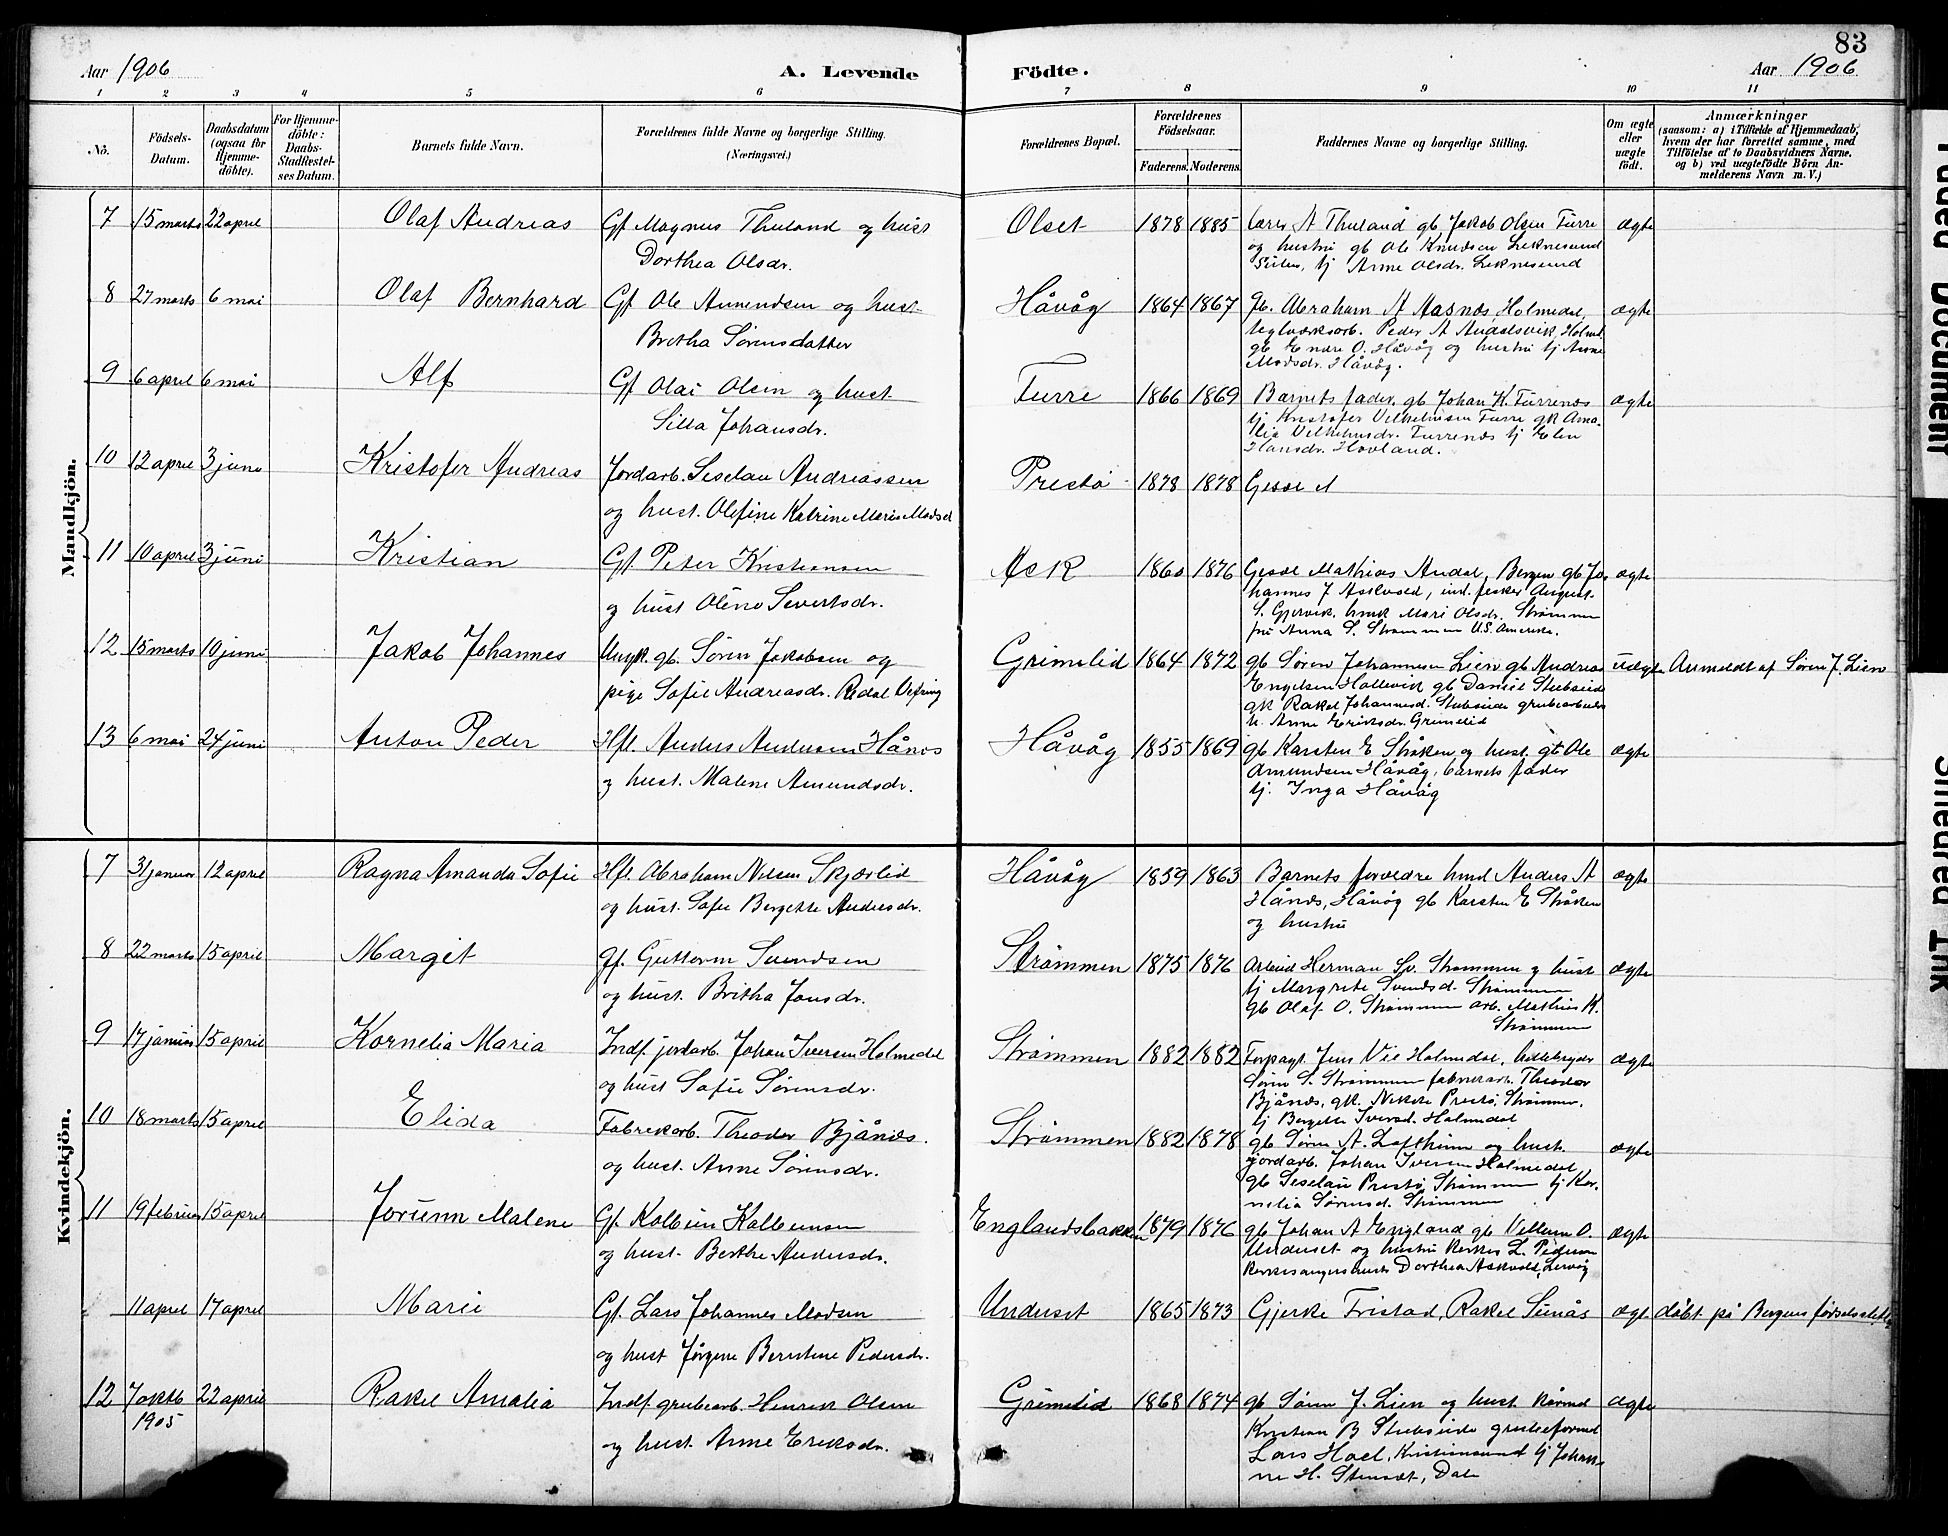 83
Aar 1906
A. Levende
Födte.
Aar 1906
1 2 3 4 5 6 7 8 9 10 11
No.
Födsels-
Datum.
Daabsdatum
(ogsaa för
Hjemme-
döbte).
For Hjemme-
döbte:
Daabs-
Stadfestel-
ses Datum.
Barnets fulde Navn.
Forældrenes fulde Navne og borgerlige Stilling.
(Næringsvei.)
Forældrenes Bopæl.
Forældrenes
Födselsaar.
Faderens. Moderens.
Faddernes Navne og borgerlige Stilling.
Om ægte
eller
uægte
födt.
Anmærkninger
(saasom: a) i Tilfælde af Hjemmedaab,
hvem der har forrettet samme, med
Tilföielse af to Daabsvidners Navne,
og b) ved uægtefödte Börn An-
melderens Navn m. V.)
Mandkjön.
7 15 marts 22 april Olaf Andreas Gf. Magnus Thuland og hust
Dorthea Olsdr.
Olset 1878 1885 Lars A Thuland gb Jakob Olsen Furre
og hustru gb Ole Knudsen Leknesund
tj Anne Olsdr. Leknesund
ægte
8 27 marts 6 mai Olaf Bernhard Gf Ole Amundsen og hust.
Bretha Sörensdatter
Håvåg 1864 1867 gb. Abraham A Aasnæs, Holmedal,
teglverksarb. Peder A Andalsvik, Holmd.
gb Endre O. Håvåg og hustru tj Anne
Madsdr. Håvåg.
ægte
9 6 april 6 mai Alf Gf Olai Olsen og hust
Silla Johansdr.
Furre 1866 1869 Barnets fader, gb Johan K. Furrenæs
tj Kristofer Vilhelmsen Furre gk Ama-
lia Vilhelmsdr. Furrenæs tj Elen
Hansdr. Hovland.
ægte
10 12 april 3 juni Kristofer Andreas Jordarb. Seselau Andreassen
og hust. Olefine Katrine Marie Madsd
Prestö 1878 1878 Gesse A
11 10 april 3 juni Kristian Gf. Peter Kristiansen
og hust Oline Severtsdr.
Ask 1860 1876 Gesse Mathias Andal, Bergen gb Jo-
hannes J Askvold, ind. fisker August
S. Gjervik, hmk Mari Olsdr. Strömmen
fru Anna S. Strömmen U.S. Amerika.
ægte
12 15 marts 10 juni Jakob Johannes Ungk. gb. Sören Jakobsen og
pige Sofie Andreasdr. Redal Vefring
Grimelid 1864 1872 gb Sören Johannesen Lien gb Andreas
Engelsen Hallevik gb Daniel Stubseide
gk Rakel Johannesd. Stubseide grubearbeider
h. Anne Eriksdr. Grimelid
uægte Anmeldt af Sören J. Lien
13 6 mai 24 juni Anton Peder Hfl. Anders Andersen Hånæs
og hust. Malene Amundsdr.
Håvåg 1855 1869 gb Karsten E Stråken og hust. gb Ole
Amundsen Håvåg, barnets fader
tj. Inga Håvåg
ægte
Kvindekjön.
7 31 januar 12 april Ragna Amanda Sofie Hfl. Abraham Nilsen Skjærlid
og hust. Sofie Bergette Andersdr.
Håvåg 1859 1863 Barnets forældre hmd Anders A
Hånæs, Håvåg gb Karsten E Stråken
og hustru
ægte
8 22 marts 15 april Margit gf. Guttorm Svendsen
og hust. Britha Jonsdr.
Strömmen 1875 1876 Arbeid Herman Sv. Strömmen og hust
tj Margrete Svendsd. Strömmen
gb Olaf O. Strömmen arb. Mathias K.
Strömmen
ægte
9 17 januar 15 april Kornelia Maria Indf. jordarb. Johan Iversen Holmedal
og hust Sofie Sörensdr.
Strömmen 1882 1882 Forpagt. Jens Vie Holmedal,
Sören S. Strömmen fabrikarb. Theodor
Bjånæs, gk. Prestö, Strömmen,
tj Bergette Iversd. Holmedal
ægte
10 18 marts 15 april Elida Fabrikarb. Theodor Bjånæs.
og hust. Anne Sörensdr.
Strömmen 1882 1878 gb Sören A. Lofthiem og hust.
jordarb. Johan Iversen Holmedal
gb Seselau Prestö, Strömmen tj Kor-
nelia Sörensd. Strömmen
ægte
11 19 februar 15 april Jorunn Malene Gf. Kolbein Kolbeinsen
og hust. Berthe Andersdr.
Englandsbakken 1879 1876 gb Johan A England gb Vellum O.
Underset og hustru kirkes L. Pedersen
kirkesangers hust Dorthea Askvold, Leivåg
ægte
11 april 17 april Marie Gf. Lars Johannes Madsen
og hust Jörgine Berntine Pedersdr.
Underset 1865 1873 Gjerke Tristad, Rakel Sunås ægt. döbt på Bergens födselsstiftelse
12 7 oktb 22 april Rakel Amalia Indf. grubearb. Henrik Olsen
1905
og hust. Anne Eriksdr.
Grimelid 1868 1874 gb Sören J. Lien og hust kårmd
Kristian B Stubseide grubeformd
Lars Hoel, Kristiansund tj Johan-
ne H. Stensæt, Dale
ægte
Faded Document
Smeared Ink